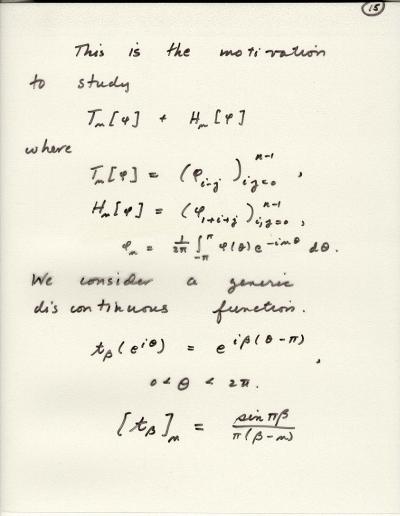 15
This is the motivation
to study
Tₙ[φ] + Hₙ[φ]
where
Tₙ[φ] = (φ_{i-j})_{i,j=0}^{n-1},
Hₙ[φ] = (φ_{1+i+j})_{i,j=0}^{n-1},
φₙ = 1/2π ∫_{-π}^{π} φ(θ) e^{-inθ} dθ.
We consider a generic
discontinuous function.
t_β(e^{iθ}) = e^{iβ(θ-π)},
0 < θ < 2π.
[t_β]ₙ = sin πβ / π(β-n)